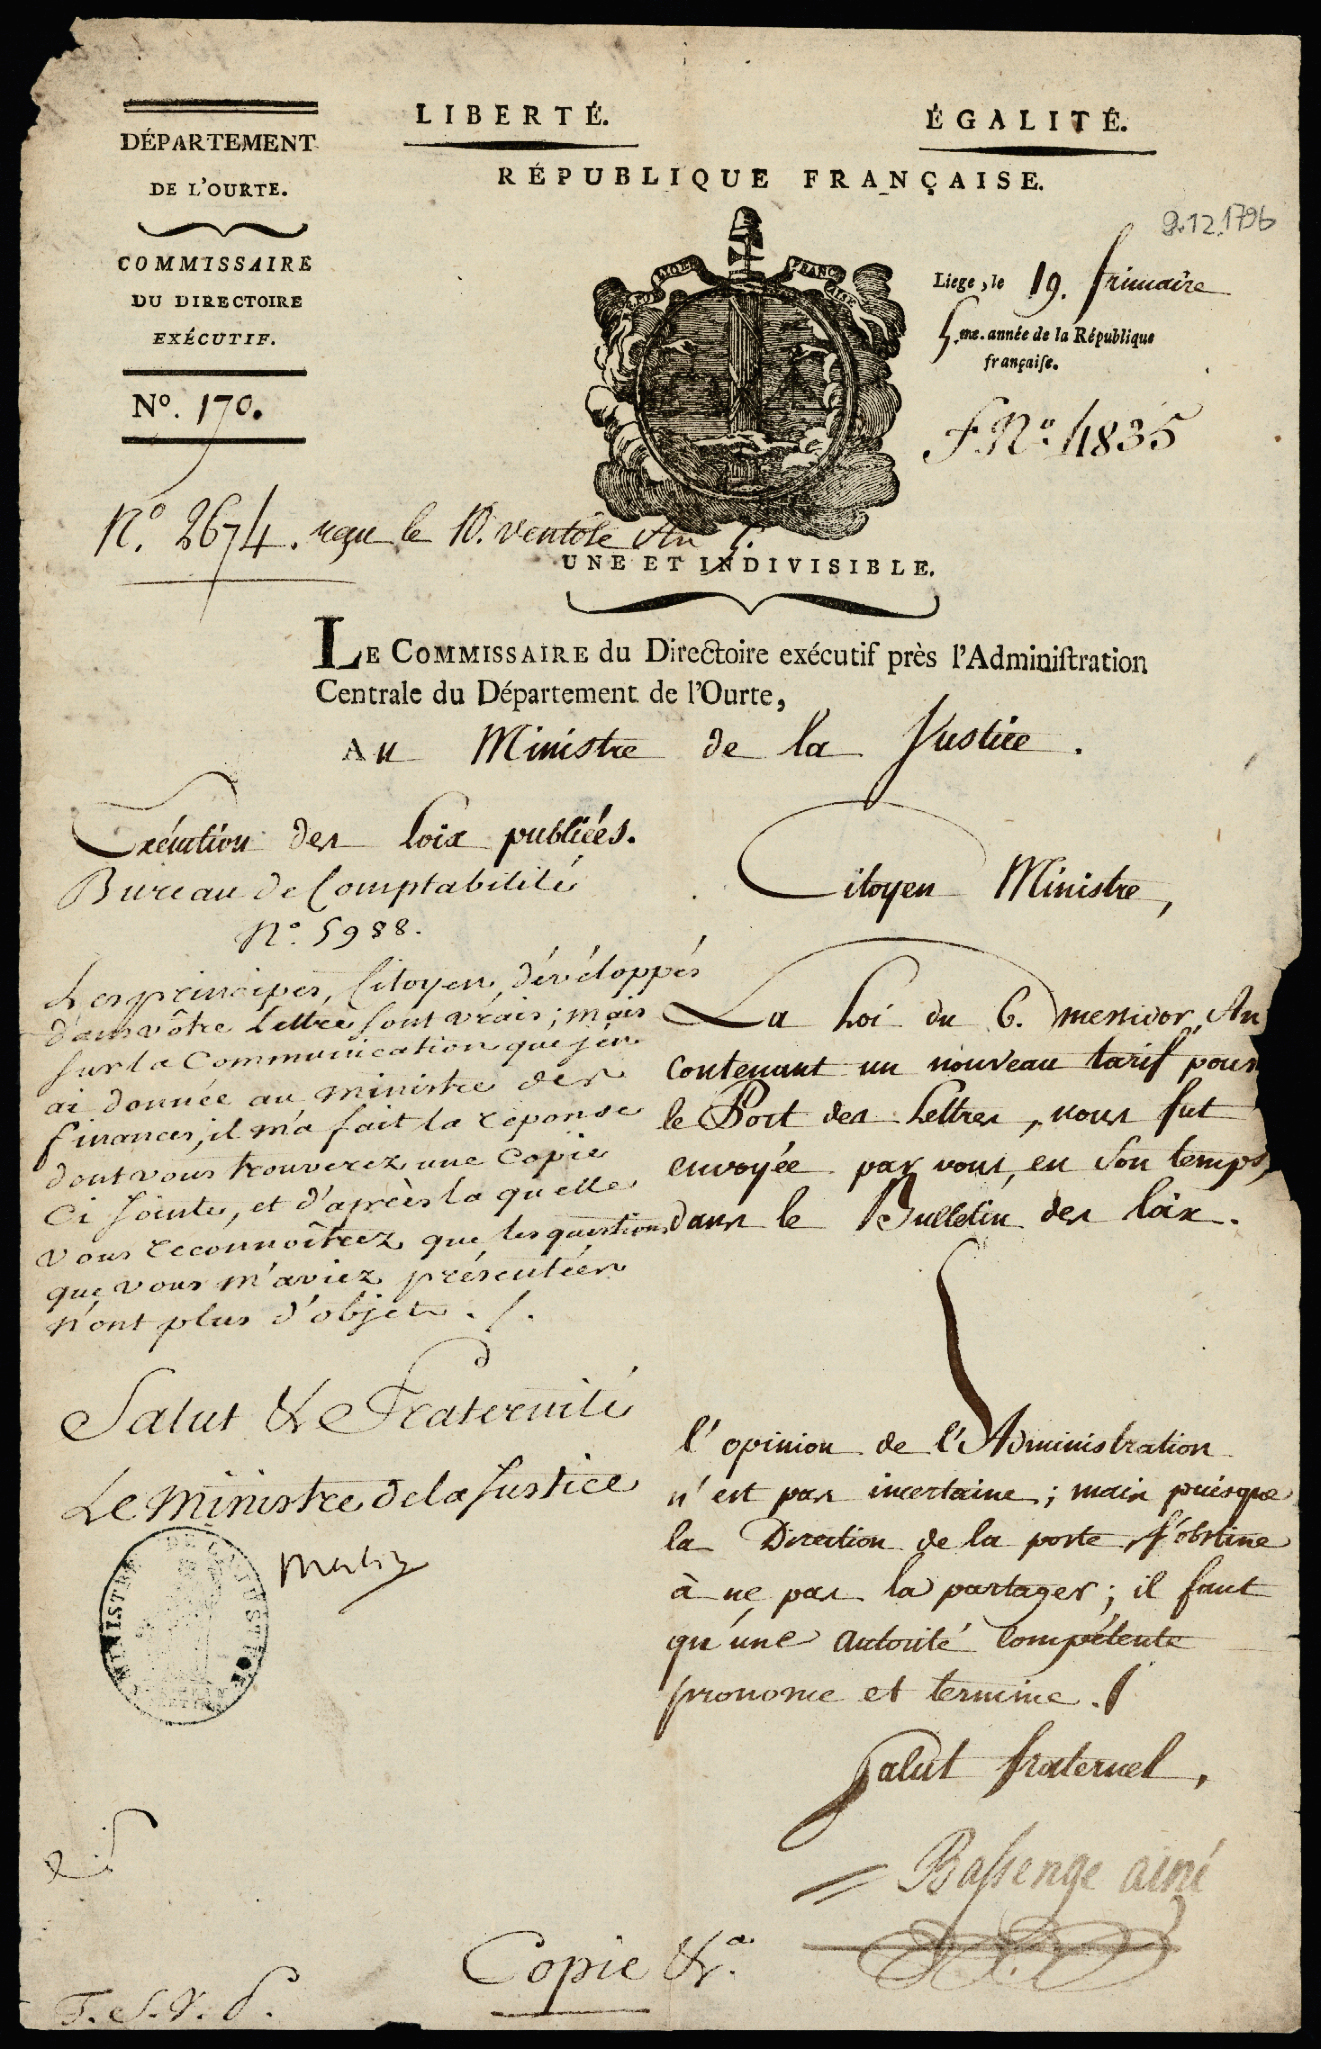 LIBERTÉ.
ÉGALITÉ.
RÉPUBLIQUE FRANÇAISE.
DÉPARTEMENT
DE L'OURTE.
COMMISSAIRE
DU DIRECTOIRE
EXÉCUTIF.
Nº. 170.
9.12.1796
Liege, le 19. frimaire
5.me. année de la République
françaiſe.
F. Nº. 4835
Nº. 2674. reçu le 10. ventôse An 5.
UNE ET INDIVISIBLE.
LE COMMISSAIRE du Directoire exécutif près l'Adminiſtration
Centrale du Département de l'Ourte,
AU Ministre de la Justice.
Exécution des Loix publiées.
Bureau de Comptabilité
Nº. 5988.
Les principes, Citoyen, développés
dans vôtre Lettre sont vrais; mais
sur la Communication que j'en
ai donnée au ministre des
finances, il m'a fait la réponse
dont vous trouverez une Copie
Ci jointe, et d'après la quelle
vous reconnoîtrez que les questions
que vous m'aviez présentées
n'ont plus d'objet ./.
Salut & Fraternité
Le Ministre de la Justice
Merlin
MINISTRE DE LA JUSTICE
Citoyen Ministre,
La Loi du 6. messidor, An
contenant un nouveau tarif pour
le Port des Lettres, nous fut
envoyée par vous, en son temps,
dans le Bulletin des loix.
l'opinion de l'Administration
n'est pas incertaine; mais puisque
la Direction de la poste s'obstine
à ne pas la partager; il faut
qu'une autorité Compétente
prononce et termine.
Salut fraternel,
Baſsenge ainé
Copie &.a
T. S. V. P.